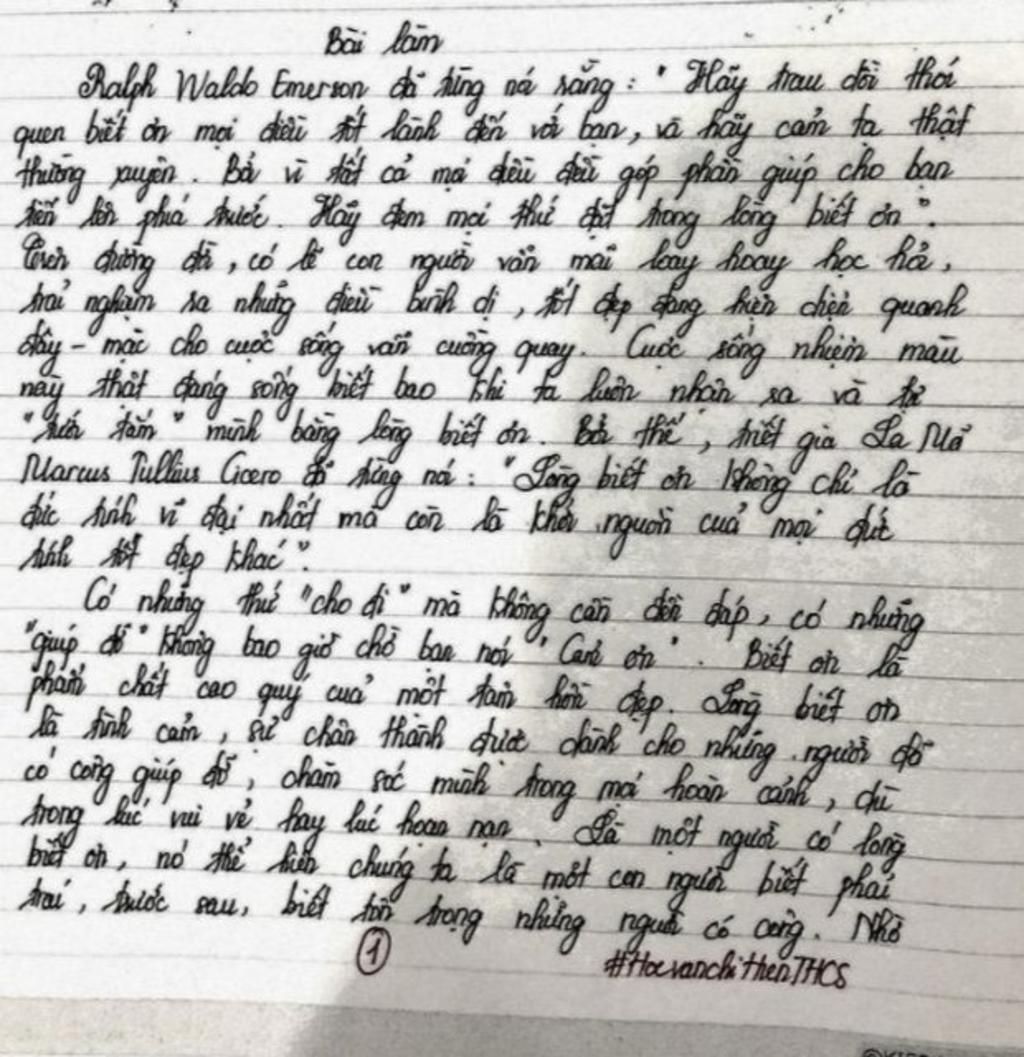 Bài làm
Ralph Waldo Emerson đã từng nói rằng: "Hãy trau dồi thói
quen biết ơn mọi điều tốt lành đến với bạn, và hãy cảm tạ thật
thường xuyên. Bởi vì tất cả mọi điều đều góp phần giúp cho bạn
tiến lên phía trước. Hãy đem mọi thứ đặt trong lòng biết ơn".
Trên đường đời, có lẽ con người vẫn mãi loay hoay học hỏi,
trải nghiệm ra những điều bình dị, tốt đẹp đang hiện diện quanh
đây - mặc cho cuộc sống vẫn cuồng quay. Cuộc sống nhiệm màu
này thật đáng sống biết bao khi ta luôn nhận ra và tự
"tưới tắm" mình bằng lòng biết ơn. Bởi thế, triết gia La Mã
Marcus Tullius Cicero đã từng nói: "Lòng biết ơn không chỉ là
đức tính vĩ đại nhất mà còn là khởi nguồn của mọi đức
tính tốt đẹp khác".
Có những thứ "cho đi" mà không cần đền đáp, có những
"giúp đỡ" không bao giờ chờ bạn nói "Cảm ơn". Biết ơn là
phẩm chất cao quý của một tâm hồn đẹp. Lòng biết ơn
là tình cảm, sự chân thành được dành cho những người đã
có công giúp đỡ, chăm sóc mình trong mọi hoàn cảnh, dù
trong lúc vui vẻ hay lúc hoạn nạn. Là một người có lòng
biết ơn, nó thể hiện chúng ta là một con người biết phải
trái, trước sau, biết tôn trọng những người có công. Nhờ
1
#HocvanchiHienTHCS